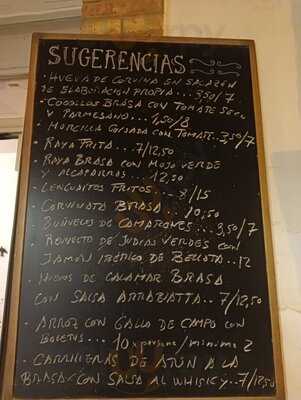 SUGERENCIAS
· HUEVA DE CORVINA EN SALAZÓN
DE ELABORACIÓN PROPIA... 3,50/7
· COGOLLOS BRASA CON TOMATE SECO
Y PARMESANO... 4,50/8
· MORCILLA GUISADA CON TOMATE. 3,50/7
· RAYA FRITA... 7/12,50
· RAYA BRASA CON MOJO VERDE
Y ALCAPARRAS... 12,50
· LENGUADITOS FRITOS... 8/15
· CORVINOTA BRASA... 10,50
· BUÑUELOS DE CAMARONES... 3,50/7
· REVUELTO DE JUDIAS VERDES CON
JAMÓN IBÉRICO DE BELLOTA.. 12
· HUEVOS DE CALAMAR BRASA
CON SALSA ARRABIATTA.. 7/12,50
· ARROZ CON GALLO DE CAMPO CON
BOLETUS... 10 x persona / minimo 2
· CARRILLERAS DE ATÚN A LA
BRASA CON SALSA AL WHISKY.. 7/12,50